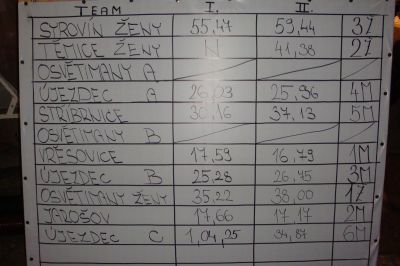 TEAM I. II.
SYROVÍN ŽENY 55,47 59,44 3Ž
TĚMICE ŽENY N 41,38 2Ž
OSVĚTIMANY A
ÚJEZDEC A 26,03 25,96 4M
STŘÍBRNICE 30,16 37,13 5M
OSVĚTIMANY B
VŘESOVICE 17,59 16,79 1M
ÚJEZDEC B 25,28 26,45 3M
OSVĚTIMANY ŽENY 35,22 38,00 1Ž
JAROŠOV 17,66 17,17 2M
ÚJEZDEC C 1,04,25 34,87 6M